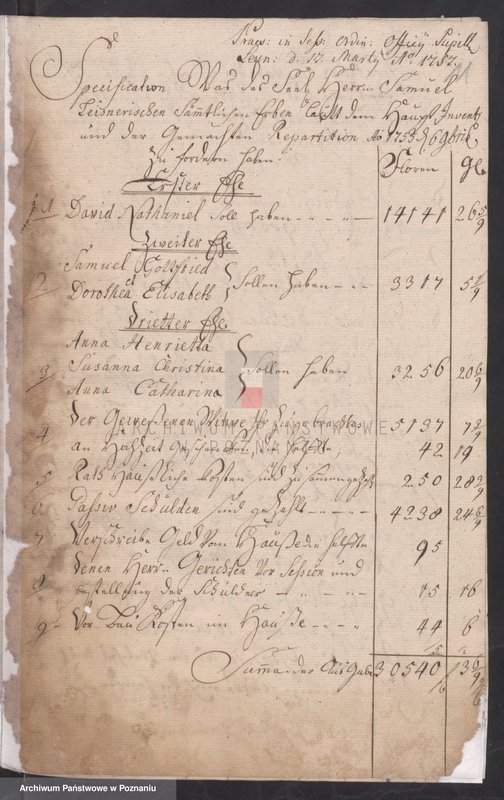 Praes: in Sess: Ordin: Officij Pupill:
d. 12. Martij Ao 1757.
Specification Was des Seel. Herrn Samuel
Leisnerischen Sämtlichen Erben laut dem Haupt Inventa
und der Gemachten Repartition Ao 1755 d 6 9bris
zu fordern haben.
Floren gl
Erster Ehe
1 David Nathaniel soll haben 14141 26 5/9
Zweiter Ehe
2 Samuel Gottfried
Dorothea Elisabeth Sollen haben 3317 5 1/9
Drietter Ehe.
Anna Henrietta
3 Susanna Christina Sollen haben 3256 20 6/9
Anna Catharina
4 Der Gewesenen Witwe 5137 7 2/9
an Hochzeit Geschencken die helfte, 42 19
5 Raths Häußliche Kosten sind 250 28 2/9
6 Passiv Schulden sind gezahlt 4238 24 6/9
7 Verschreibe Geld vom Hauße die helfte 95
8 Denen Herrn Gerichten Vor Session und
bestellung der Schuldner 15 16
9 Vor Bau Kosten am Hauße 44 6
Summa der Aus Gabe 30540 13 6/9
ARCHIWUM PAŃSTWOWE
W POZNANIU
Archiwum Państwowe w Poznaniu